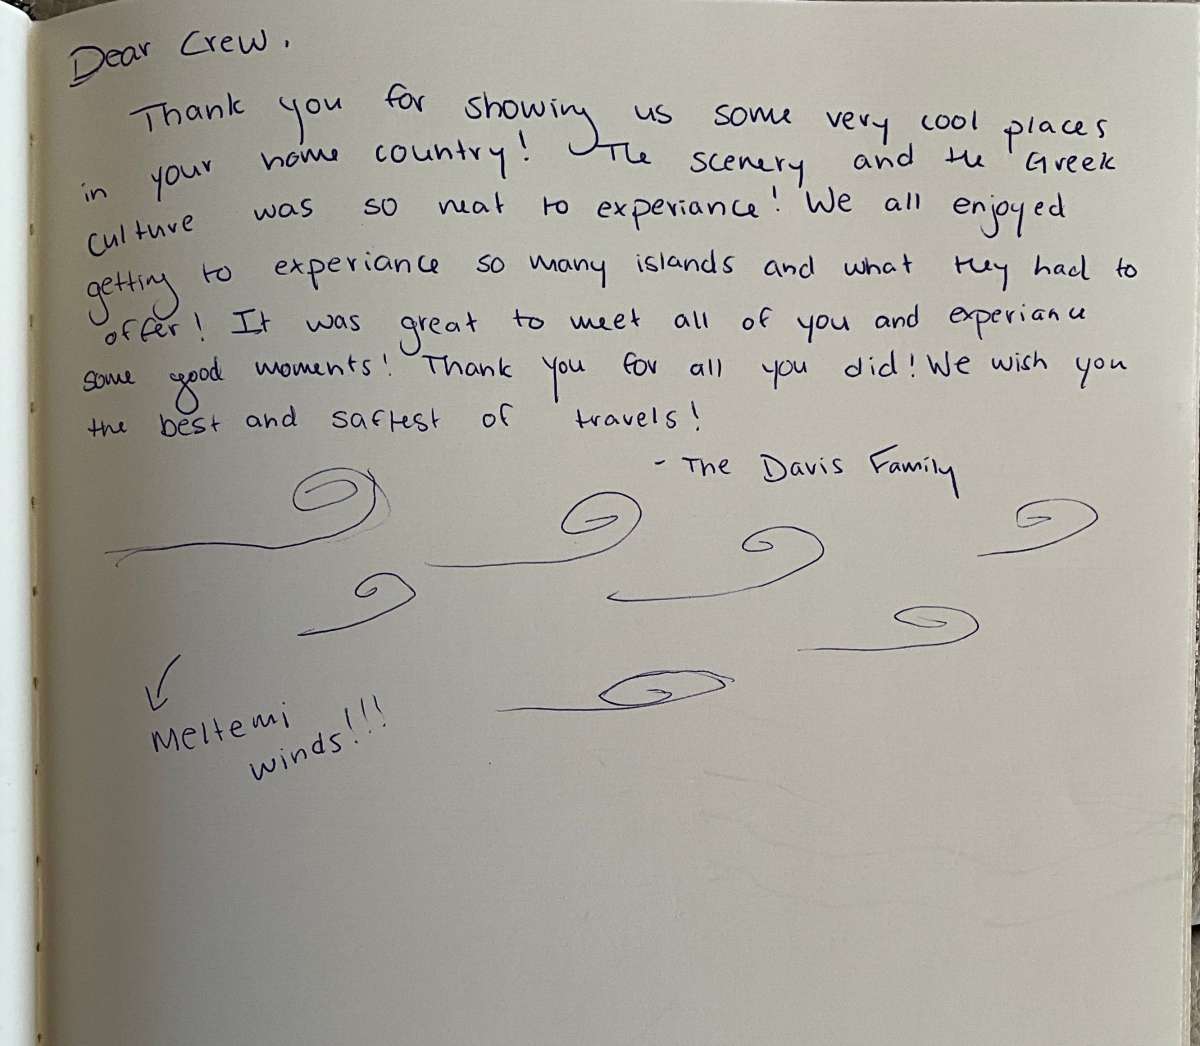 Dear Crew.
Thank you for showing us some very cool places
in your home country! The scenery and the Greek
culture was so neat to experiance! We all enjoyed
getting to experiance so many islands and what they had to
offer! It was great to meet all of you and experiance
some good moments! Thank you for all you did! We wish you
the best and saftest of travels!
- The Davis Family
Meltemi
winds!!!